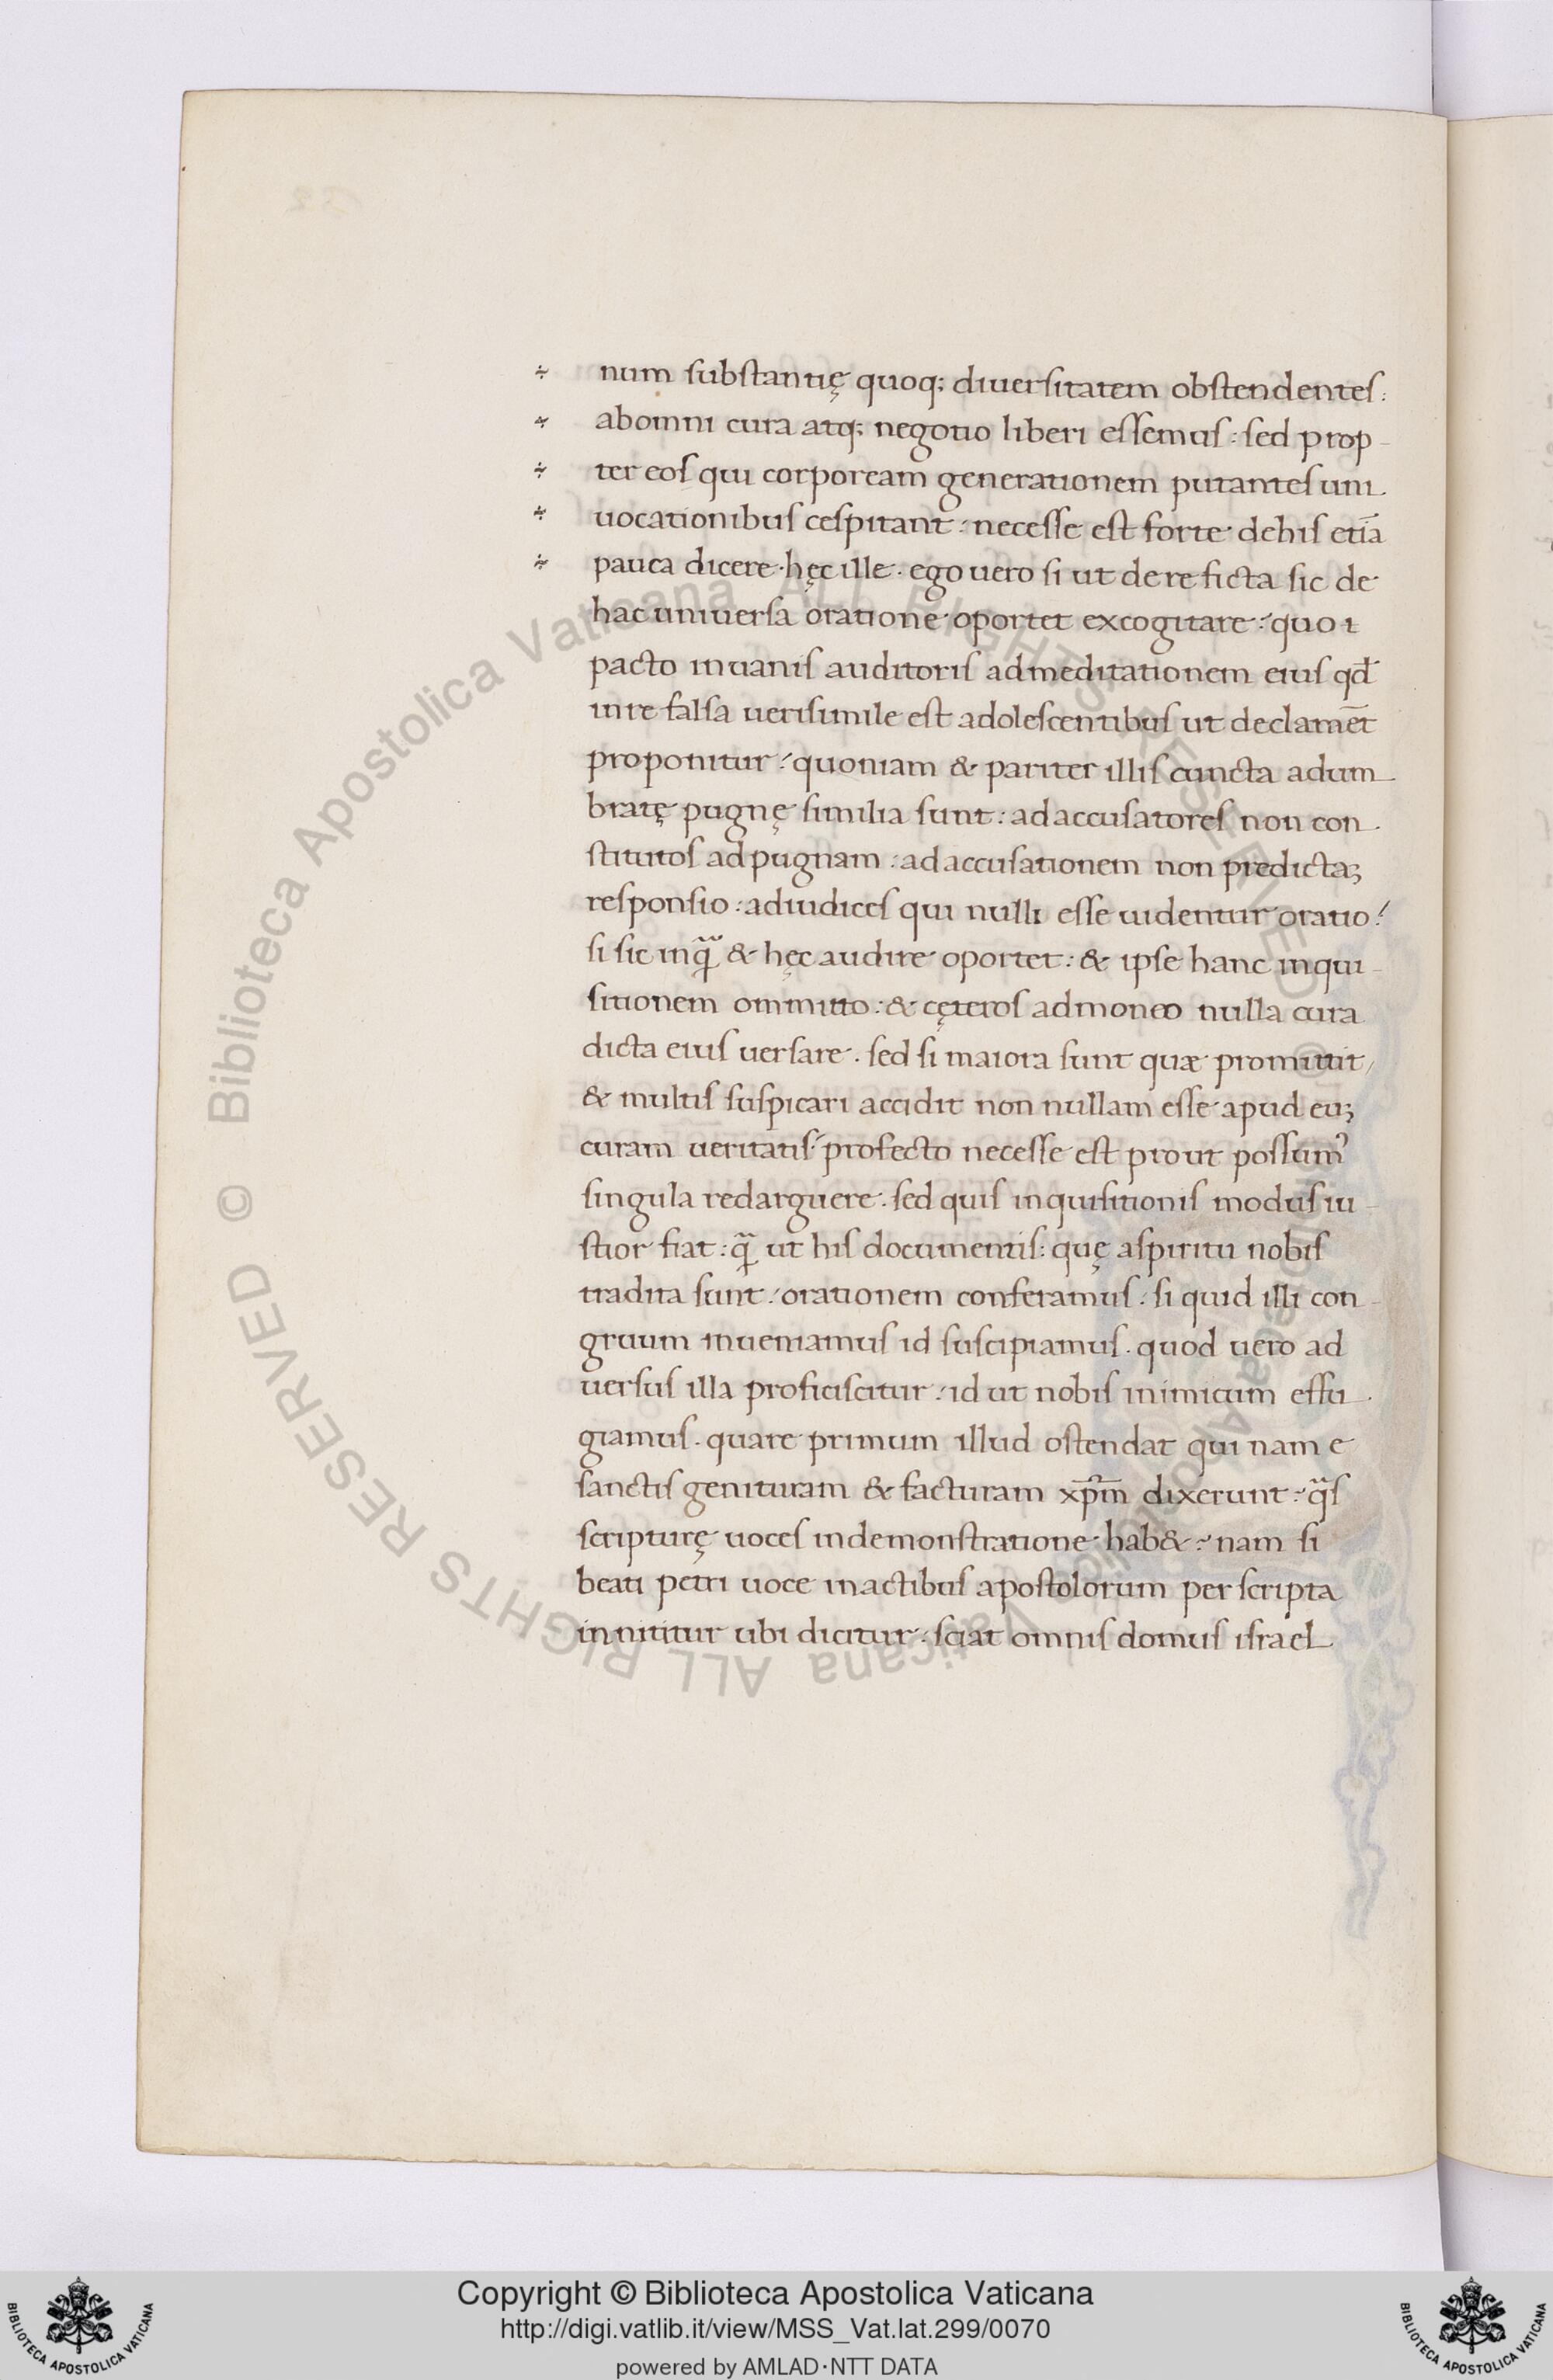 num substantię quoq; diuersitatem obstendentes:
abomni cura atq; negotio liberi essemus: sed prop-
ter eos qui corpoream generationem putantes uni-
uocationibus cespitant: necesse est forte dehis etiā
pauca dicere. hęc ille. ego uero si ut dere ficta sic de
hac uniuersa oratione oportet excogitare: quo i
pacto inuanis auditoris admeditationem eius qđ
inre falsa uerisimile est adolescentibus ut declamēt
proponitur: quoniam & pariter illis cuncta adum-
bratę pugnę similia sunt: adaccusatores non con-
stitutos adpugnam: adaccusationem non predictaȝ
responsio: adiudices qui nulli esse uidentur oratio:
si sic inq̃ & hęc audire oportet: & ipse hanc inqui-
sitionem ommitto: & cęteros admoneo nulla cura
dicta eius uersare. sed si maiora sunt quæ promittit,
& multis suspicari accidit non nullam esse apud euȝ
curam ueritatis: profecto necesse est prout possumꝰ
singula redarguere. sed quis inquisitionis modus iu-
stior fiat: q̃ ut his documentis: quę aspiritu nobis
tradita sunt: orationem conferamus: si quid illi con-
gruum inueniamus id suscipiamus. quod uero ad
uersus illa proficiscitur: id ut nobis inimicum effu-
giamus. quare primum illud ostendat qui nam e
sanctis genituram & facturam xp̄m̄ dixerunt: q̃s
scripturę uoces indemonstratione hab&: nam si
beati petri uoce inactibus apostolorum perscripta
innititur ubi dicitur: sciat omnis domus israel
© Biblioteca Apostolica Vaticana ALL RIGHTS RESERVED © Biblioteca Apostolica Vaticana ALL RIGHTS RESERVED
Copyright © Biblioteca Apostolica Vaticana
http://digi.vatlib.it/view/MSS_Vat.lat.299/0070
powered by AMLAD·NTT DATA
BIBLIOTECA APOSTOLICA VATICANA
BIBLIOTECA APOSTOLICA VATICANA